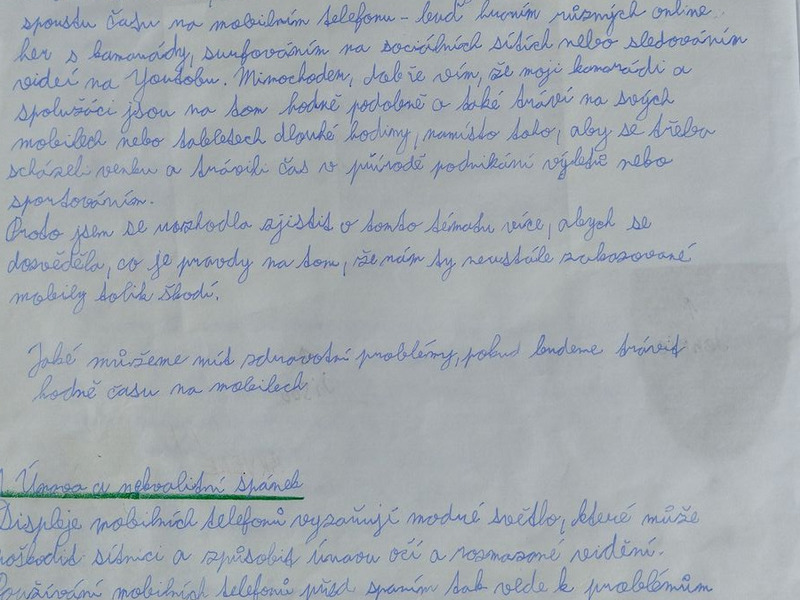 spoustu času na mobilním telefonu - buď hraním různých online
her s kamarády, surfováním na sociálních sítích nebo sledováním
videí na Youtubu. Mimochodem, dobře vím, že moji kamarádi a
spolužáci jsou na tom hodně podobně a také tráví na svých
mobilech nebo tabletech dlouhé hodiny, namísto toho, aby se třeba
scházeli venku a trávili čas v přírodě podnikání výletů nebo
sportováním.
Proto jsem se rozhodla zjistit o tomto tématu více, abych se
dozvěděla, co je pravdy na tom, že nám ty neustále zakazované
mobily tolik škodí.
Jaké můžeme mít zdravotní problémy, pokud budeme trávit
hodně času na mobilech
Únava a nekvalitní spánek
Displeje mobilních telefonů vyzařují modré světlo, které může
poškodit sítnici a způsobit únavu očí a rozmazané vidění.
Používání mobilních telefonů před spaním tak vede k problémům